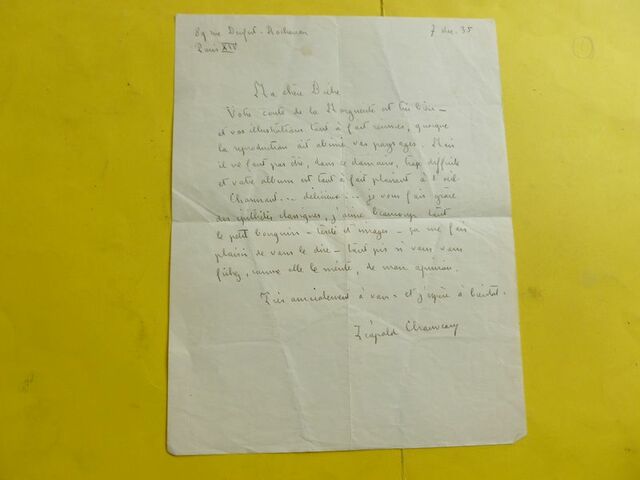 89 rue Denfert-Rochereau
7 déc. 35
Paris XIV
Ma chère
Votre conte de la Marguerite est très
et vos illustrations tout à fait réussies, quoique
la reproduction ait abimé vos paysages. Mais
il ne faut pas être, dans ce domaine, trop difficile
et votre album est tout à fait plaisant à l'œil
Charmant... délicieux... je vous fais grâce
des épithètes classiques, j'aime beaucoup tout
le petit bouquin - texte et images - ça me fait
plaisir de vous le dire - tant pis si vous vous
fichez, comme elle le mérite, de mon opinion.
Très amicalement à vous - et j'espère à bientôt.
Léopold Chauveau